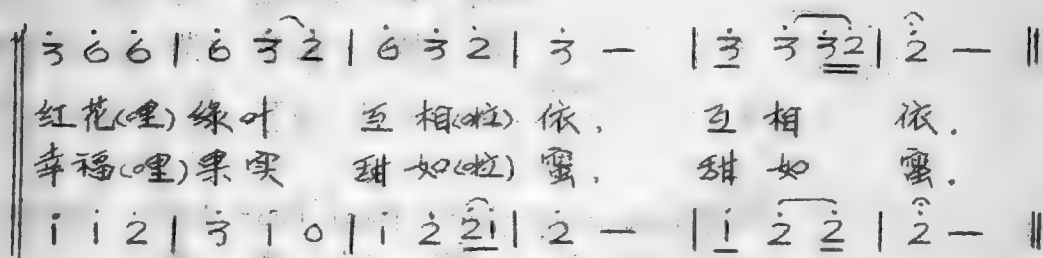 3̇ 6̇ 6̇ | 6̇ 3̇ 2̇ | 6̇ 3̇ 2̇ | 3̇ — | 3̇ 3̇ 3̇2̇ | 2̇ — ‖
红花(哩)绿叶 互相(啦)依. 互相 依.
幸福(哩)果实 甜如(啦)蜜. 甜如 蜜.
i i 2̇ | 3̇ i 0 | i 2̇ 2̇i | 2̇ — | i 2̇ 2̇ | 2̇ — ‖